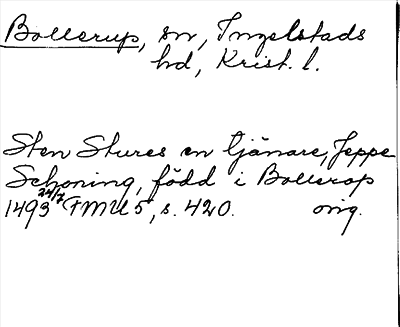 Bollerup, sn, Ingelstads
hd, Krist. l.
Sten Stures en tjänare, Jeppe
Schoning, född i Bollerop
1493 24/7 FMU 5, s. 420. orig.